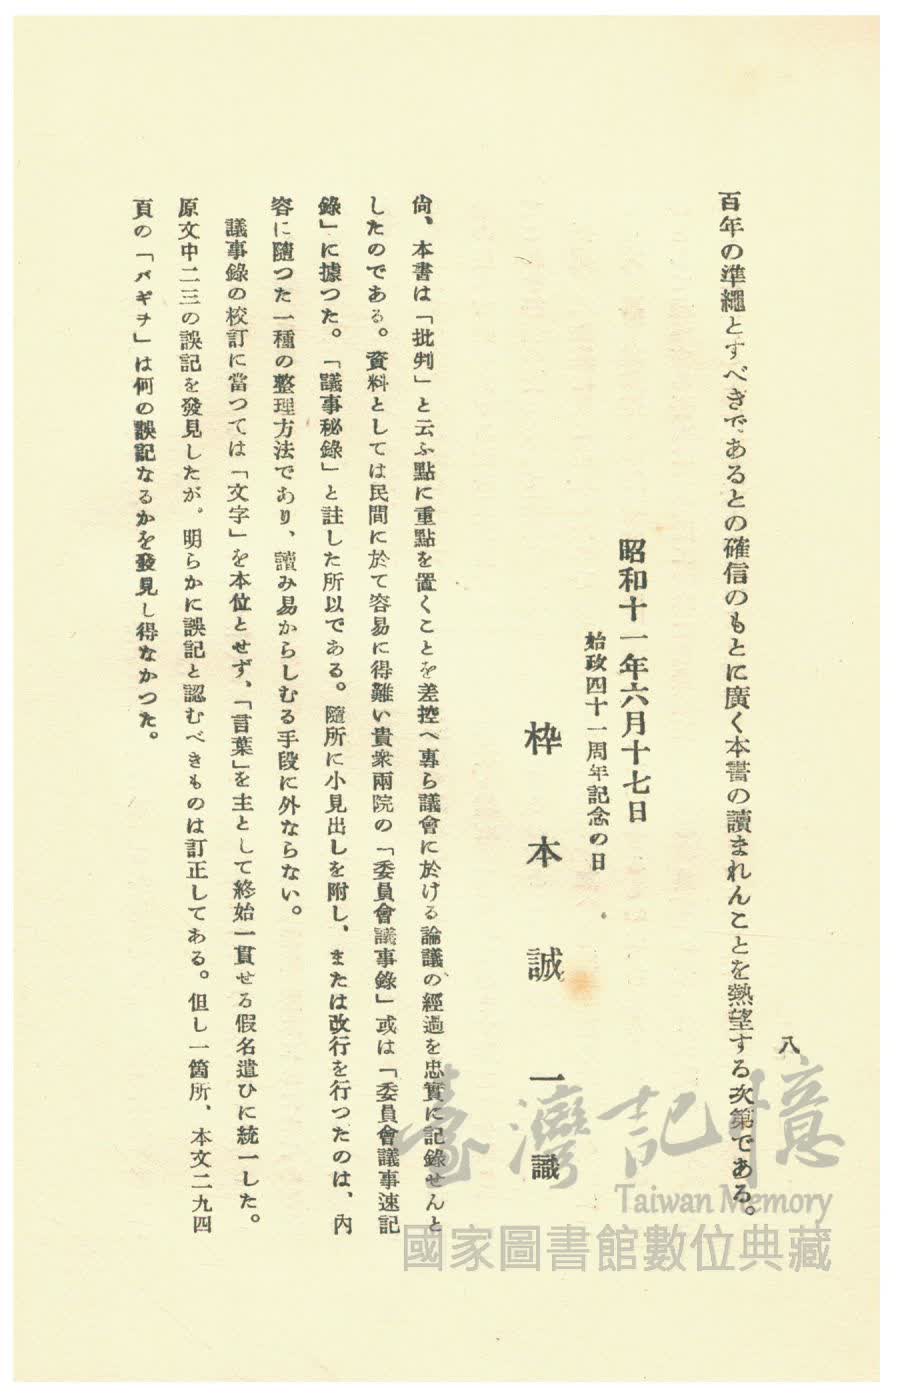 八
百年の準繩とすべきであるとの確信のもとに廣く本書の讀まれんことを熱望する次第である。
昭和十一年六月十七日
始政四十一周年記念の日
枠本誠一識
尙、本書は「批判」と云ふ點に重點を置くことを差控へ專ら議會に於ける論議の經過を忠實に記錄せんと
したのである。資料としては民間に於て容易に得難い貴衆兩院の「委員會議事錄」或は「委員會議事速記
錄」に據つた。「議事秘錄」と註した所以である。隨所に小見出しを附し、または改行を行つたのは、內
容に隨つた一種の整理方法であり、讀み易からしむる手段に外ならない。
議事錄の校訂に當つては「文字」を本位とせず、「言葉」を主として終始一貫せる假名遣ひに統一した。
原文中二三の誤記を發見したが。明らかに誤記と認むべきものは訂正してある。但し一箇所、本文二九四
頁の「バギヲ」は何の誤記なるかを發見し得なかつた。
臺灣記憶
Taiwan Memory
國家圖書館數位典藏